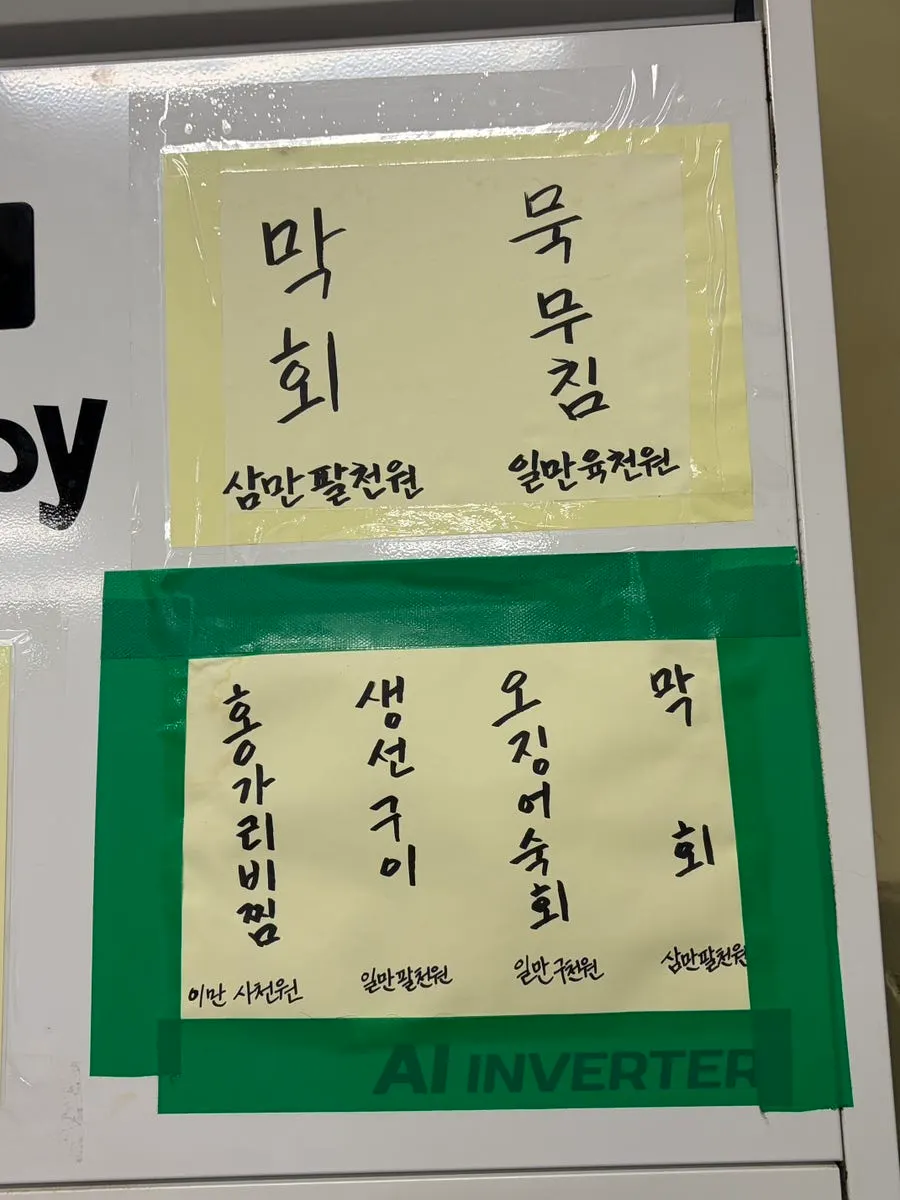 막회
묵무침
삼만팔천원
일만육천원
oy
홍가리비찜
생선구이
오징어숙회
막회
이만 사천원
일만팔천원
일만구천원
삼만팔천원
AI INVERTER